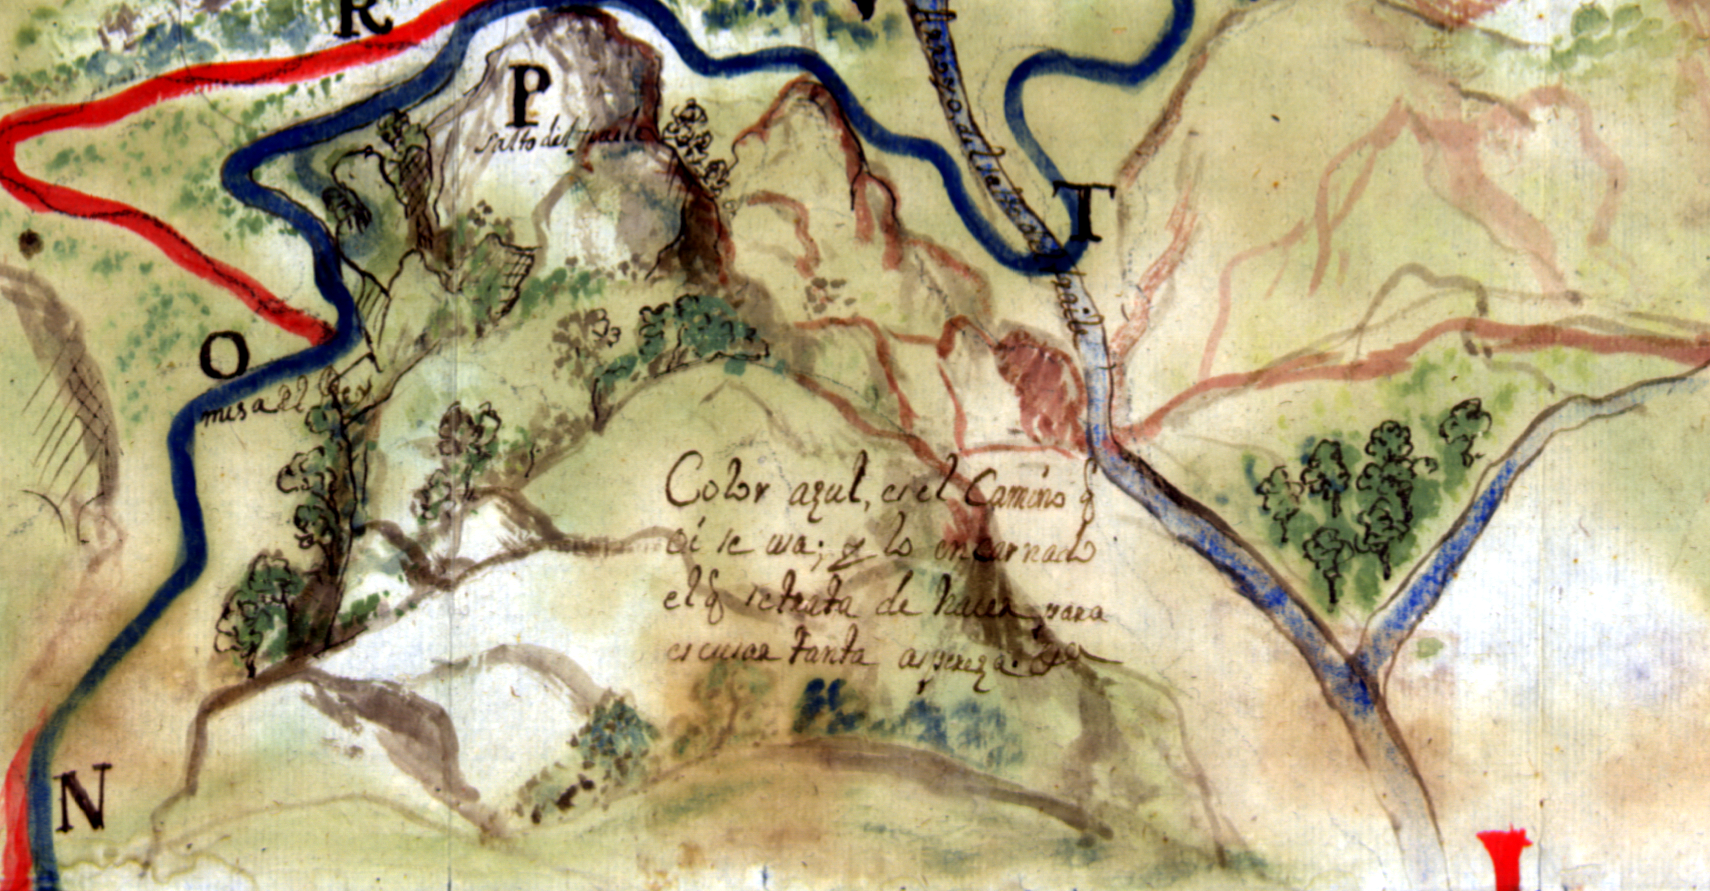 R
P
Salto del
T
O
mesa el
Color azul, es el Camino q
oi se usa; y lo encarnado
el q se trata de hacer para
escusar tanta aspereza.
N
I